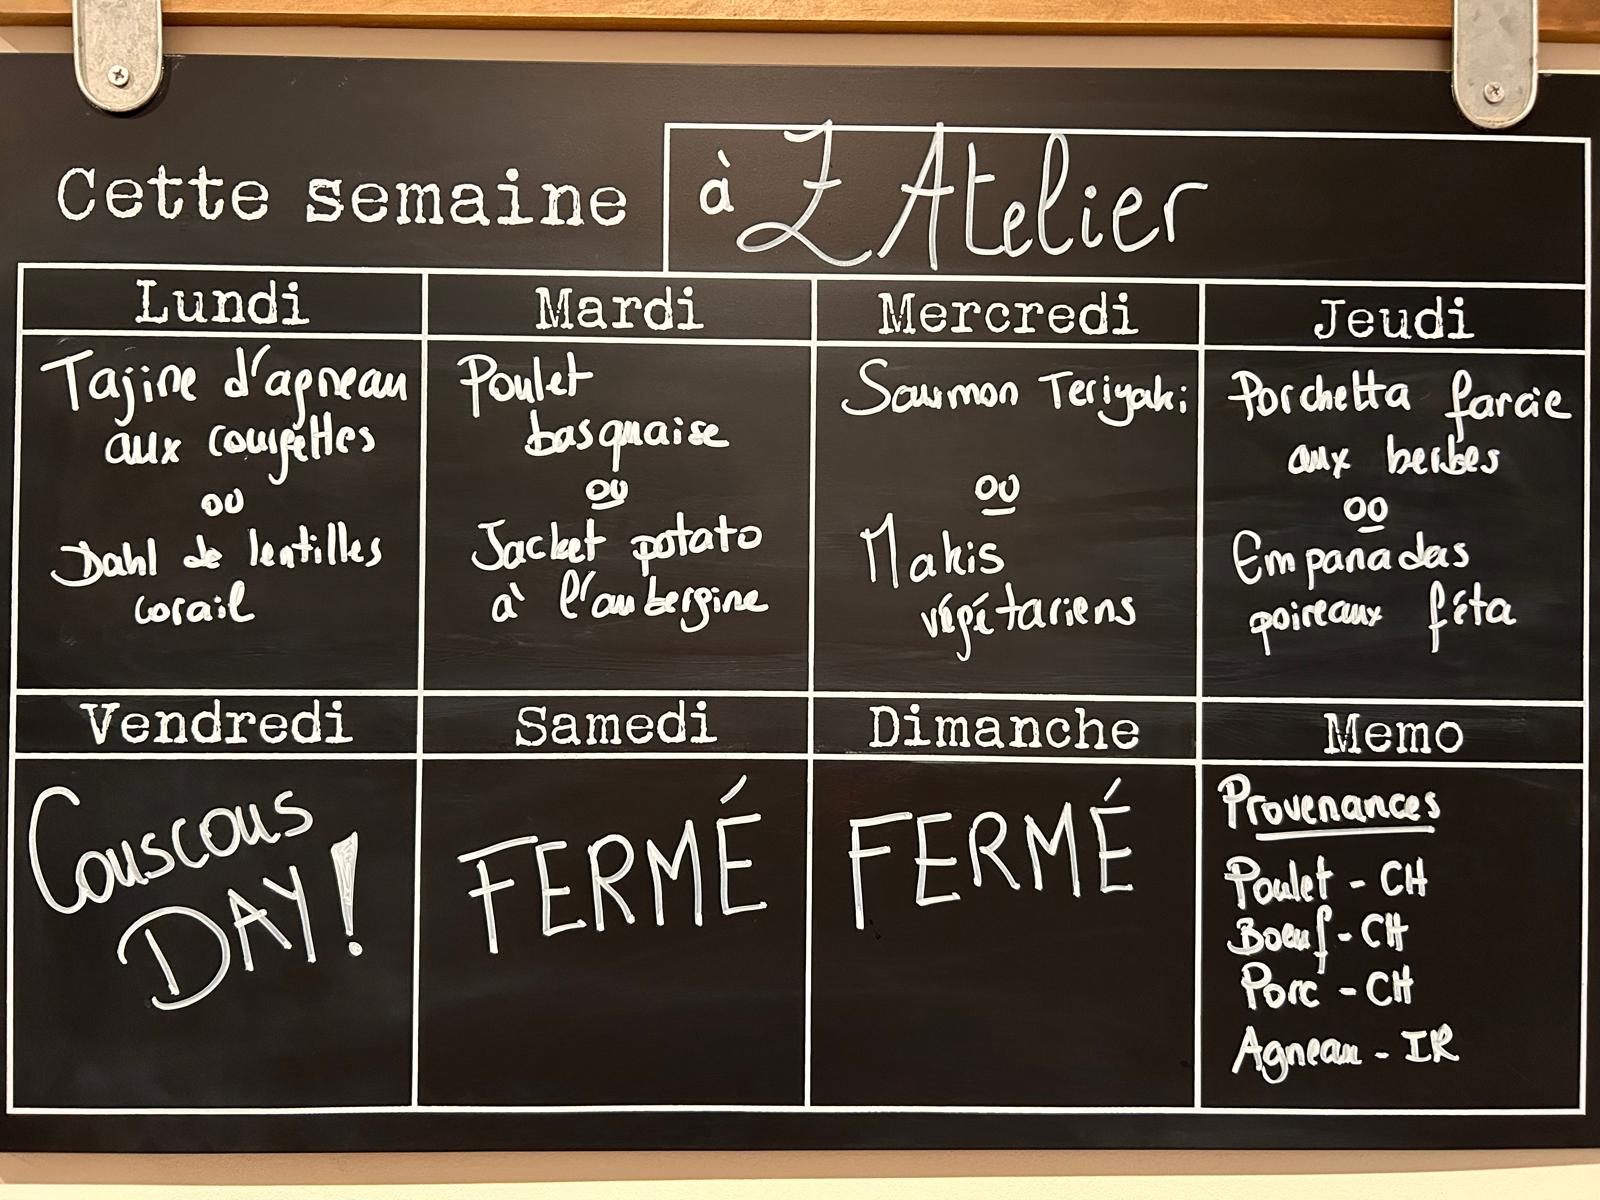 Cette semaine
à Z Atelier
Lundi
Tajine d'agneau
aux courgettes
ou
Dahl de lentilles
corail
Mardi
Poulet
basquaise
ou
Jacket potato
à l'aubergine
Mercredi
Saumon Teriyaki
ou
Makis
végétariens
Jeudi
Porchetta farcie
aux herbes
ou
Empanadas
poireaux féta
Vendredi
Couscous
DAY!
Samedi
FERMÉ
Dimanche
FERMÉ
Memo
Provenances
Poulet - CH
Boeuf - CH
Porc - CH
Agneau - IR